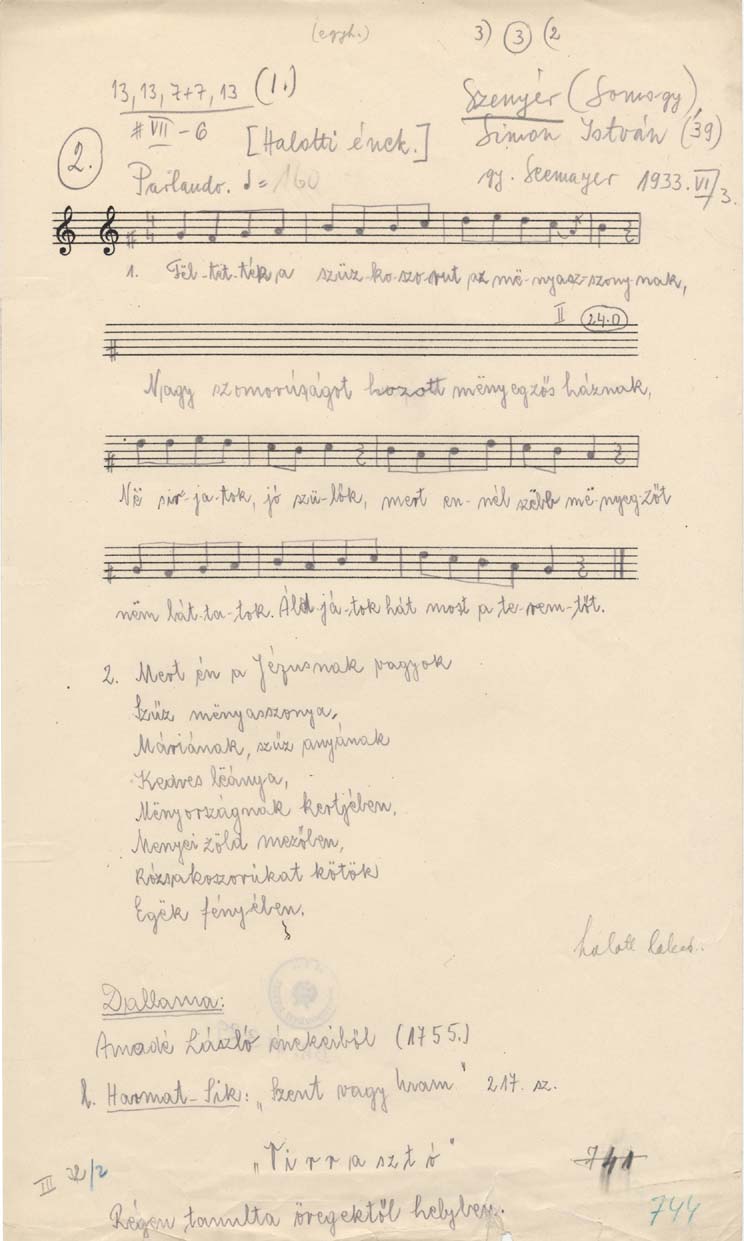 (egyh.) 3) (3) (2
13, 13, 7+7, 13 (1.) Szenyér (Somogy)
# VII - 6 [Halotti ének.] Simon István (39)
2. Parlando. ♩= 160 gy. Seemayer 1933. VI/3.
1. Föl-tët-ték a szűz-ko-szo-rut az më-nyasz-szony-nak,
II (24.D)
Nagy szomorúságot hozott mënyegzős háznak,
Në sir-ja-tok, jó szü-lők, mert en-nél szëbb më-nyeg-zőt
nëm lát-ta-tok. Áld-já-tok hát most a te-rem-tőt.
2. Mert én a Jézusnak vagyok
Szűz mënyasszonya,
Máriának, szűz anyának
Kedves lëánya,
Mënyországnak kertjében,
Menyei zöld mezőben,
Rózsakoszorúkat kötök
Egëk fényében.
halott
Dallama:
Amadé László énekeiből (1755.)
l. Harmat-Sik: „Szent vagy Uram" 217. sz.
„Virrasztó" 741
III 32/2
Régen tanulta öregektől helyben. 744